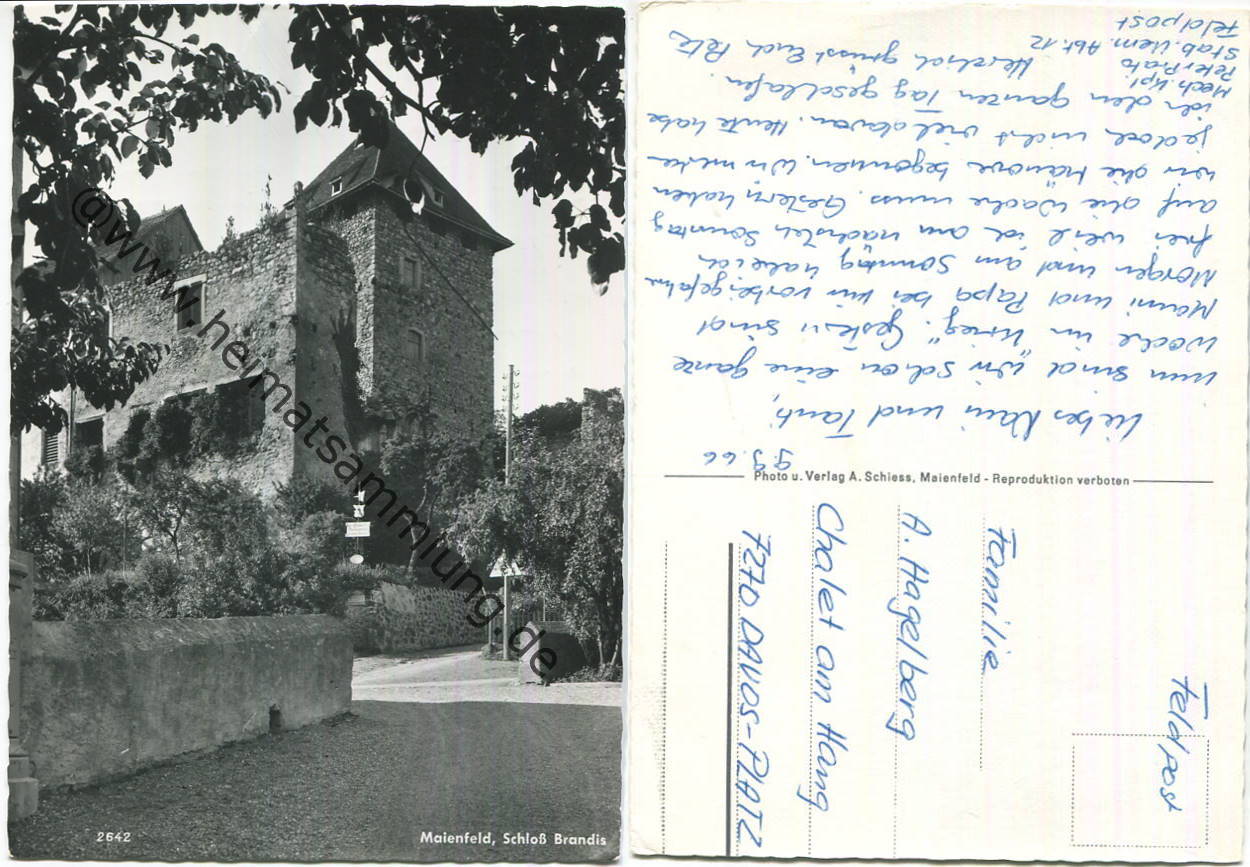 @www.heimatsammlung.de
2642
Maienfeld, Schloß Brandis
9.9.66
Liebes Klein und Tanti,
nun sind wir schon eine ganze
Woche im "Krieg". Gestern sind
Mami und Papa bei mir vorbeigefahren
Morgen und am Sonntag habe ich
frei weil ich am nächsten Sonntag
auf die Wache muss. Gestern haben
wir die Manöver begonnen. Wir merken
jedoch nicht viel davon. Heute habe
ich den ganzen Tag geschlafen.
Herzlich grüsst Euch Petz
Mech. Kpl.
Peter Prato
Stab Uem. Abt. 12
Feldpost
Photo u. Verlag A. Schiess, Maienfeld - Reproduktion verboten
Feldpost
Familie
A. Hagelberg
Chalet am Hang
7270 DAVOS-PLATZ